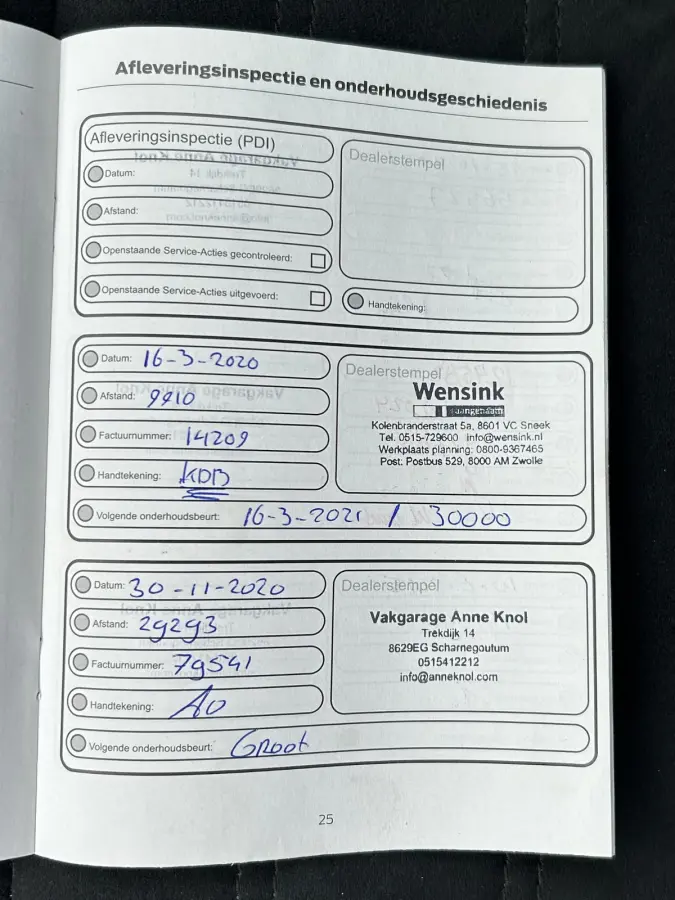 Afleveringsinspectie en onderhoudsgeschiedenis
Afleveringsinspectie (PDI)
Datum:
Afstand:
Openstaande Service-Acties gecontroleerd:
Openstaande Service-Acties uitgevoerd:
Dealerstempel
Handtekening:
Datum: 16-3-2020
Afstand: 9910
Factuurnummer: 14209
Handtekening: KDB
Volgende onderhoudsbeurt: 16-3-2021 / 30000
Dealerstempel
Wensink
Kolenbranderstraat 5a, 8601 VC Sneek
Tel. 0515-729600 info@wensink.nl
Werkplaats planning: 0800-9367465
Post: Postbus 529, 8000 AM Zwolle
Datum: 30-11-2020
Afstand: 29293
Factuurnummer: 79541
Handtekening:
Volgende onderhoudsbeurt: Groot
Dealerstempel
Vakgarage Anne Knol
Trekdijk 14
8629EG Scharnegoutum
0515412212
info@anneknol.com
25